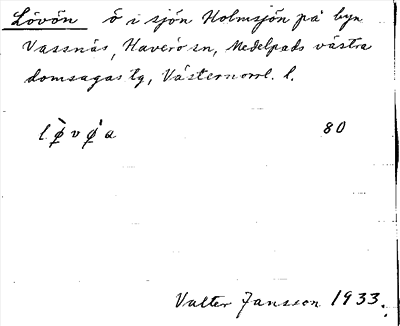 Lövön ö i sjön Holmsjön på byn
Vassnäs, Haverö sn, Medelpads västra
domsagas tg, Västernorrl. l.
lø̀vø̍a 80
Valter Jansson 1933.